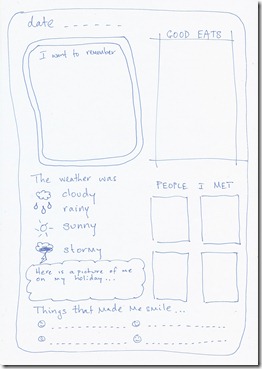 date
GOOD EATS
I want to remember
The weather was
cloudy
rainy
sunny
stormy
PEOPLE I MET
Here is a picture of me
on my holiday...
Things that Made Me smile...